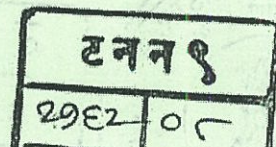 टनन९
२१६२ ०८